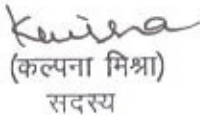 (कल्पना मिश्रा)
सदस्य